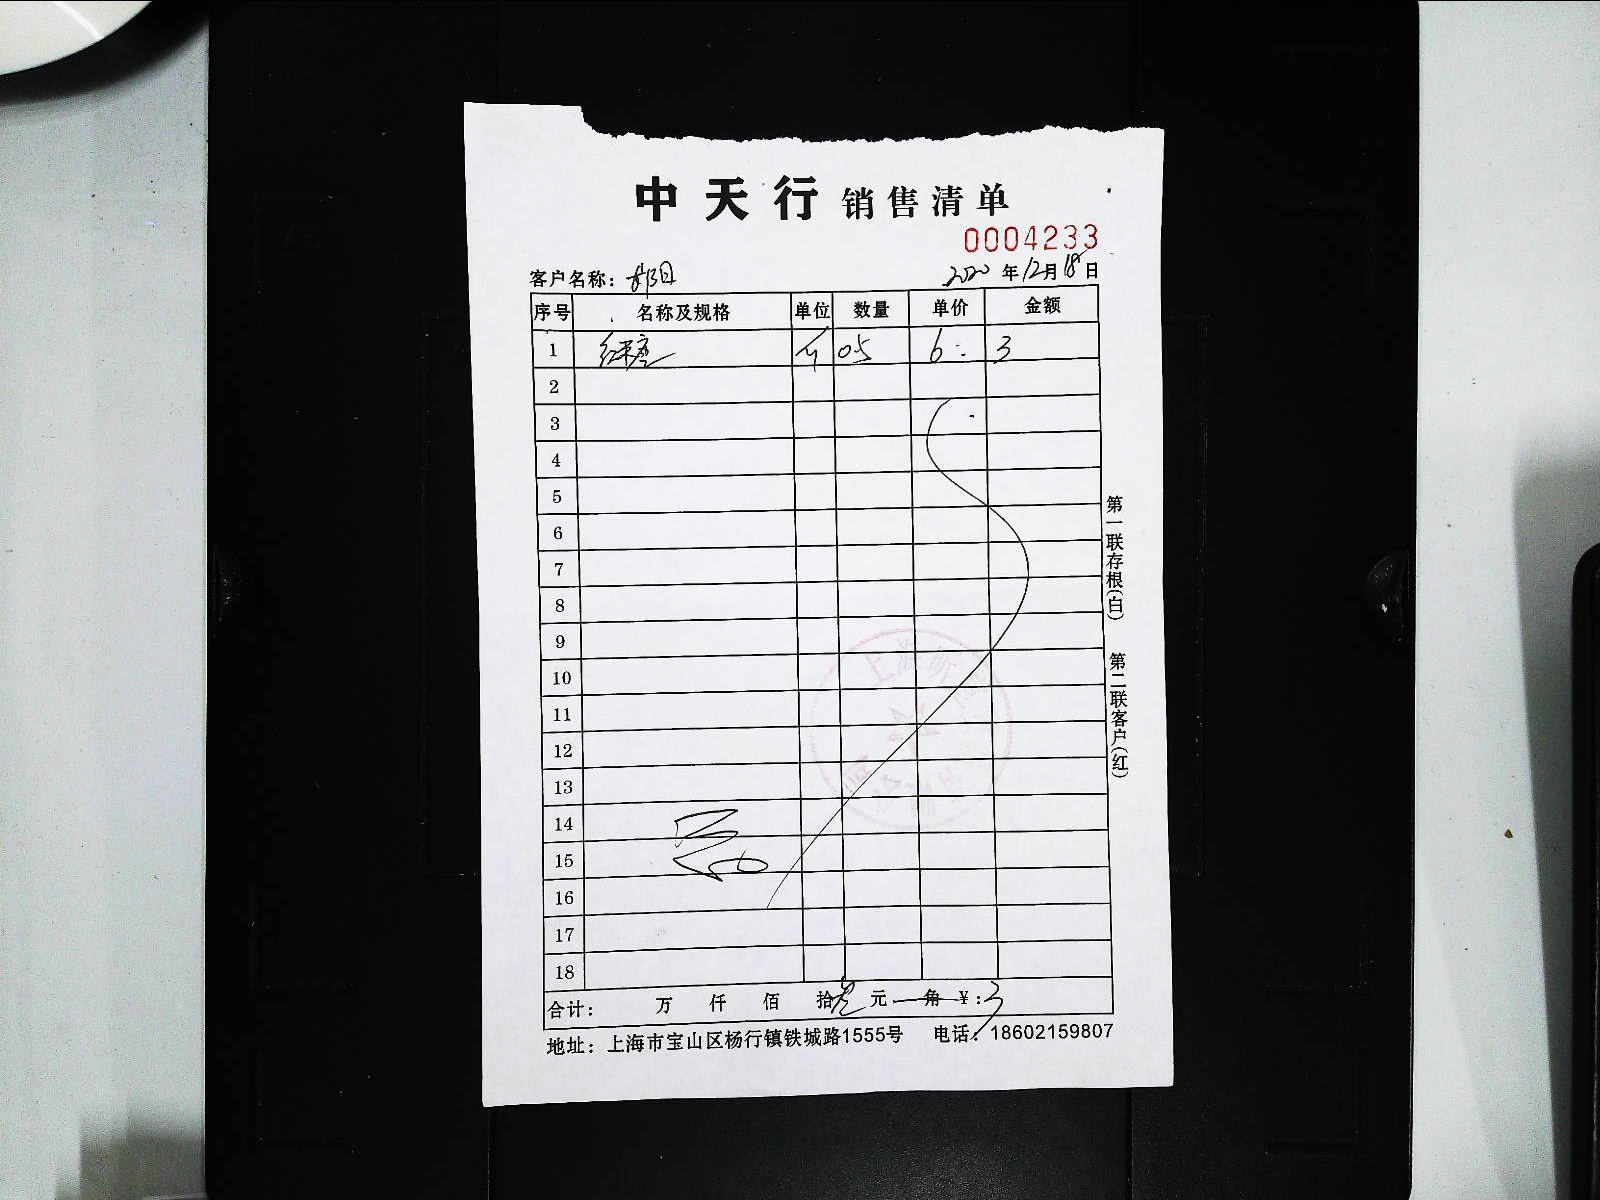 中天行 销售清单
0004233
客户名称： 2020年12月18日
序号 名称及规格 单位 数量 单价 金额
1 红米枣 斤 05 6 3
2
3
4
5
6
7
8
9
10
11
12
13
14
15
16
17
18
合计： 万 仟 佰 拾叁元 角 ￥:3
地址：上海市宝山区杨行镇铁城路1555号 电话：18602159807
第一联存根(白) 第二联客户(红)
上海昕
公司